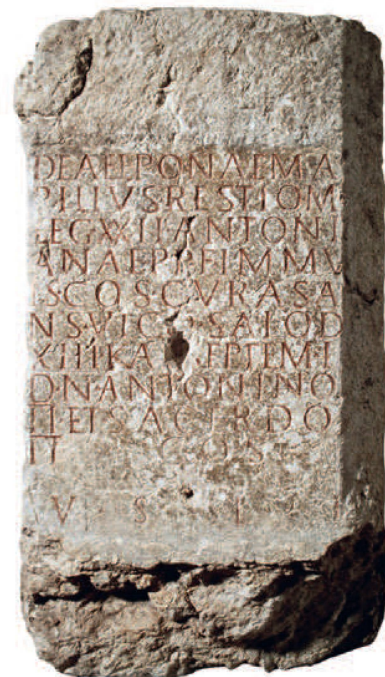 DEAEEPONAEMA
PILIVSRESTIOM
LEGXXIIANTONI
ANAEPPFIMMV
ISCOSCVRASA
NSVICOSALOD
XIIIIKA EPTEMB
DNANTONINO
IIETSACERDO
II COS
V S L